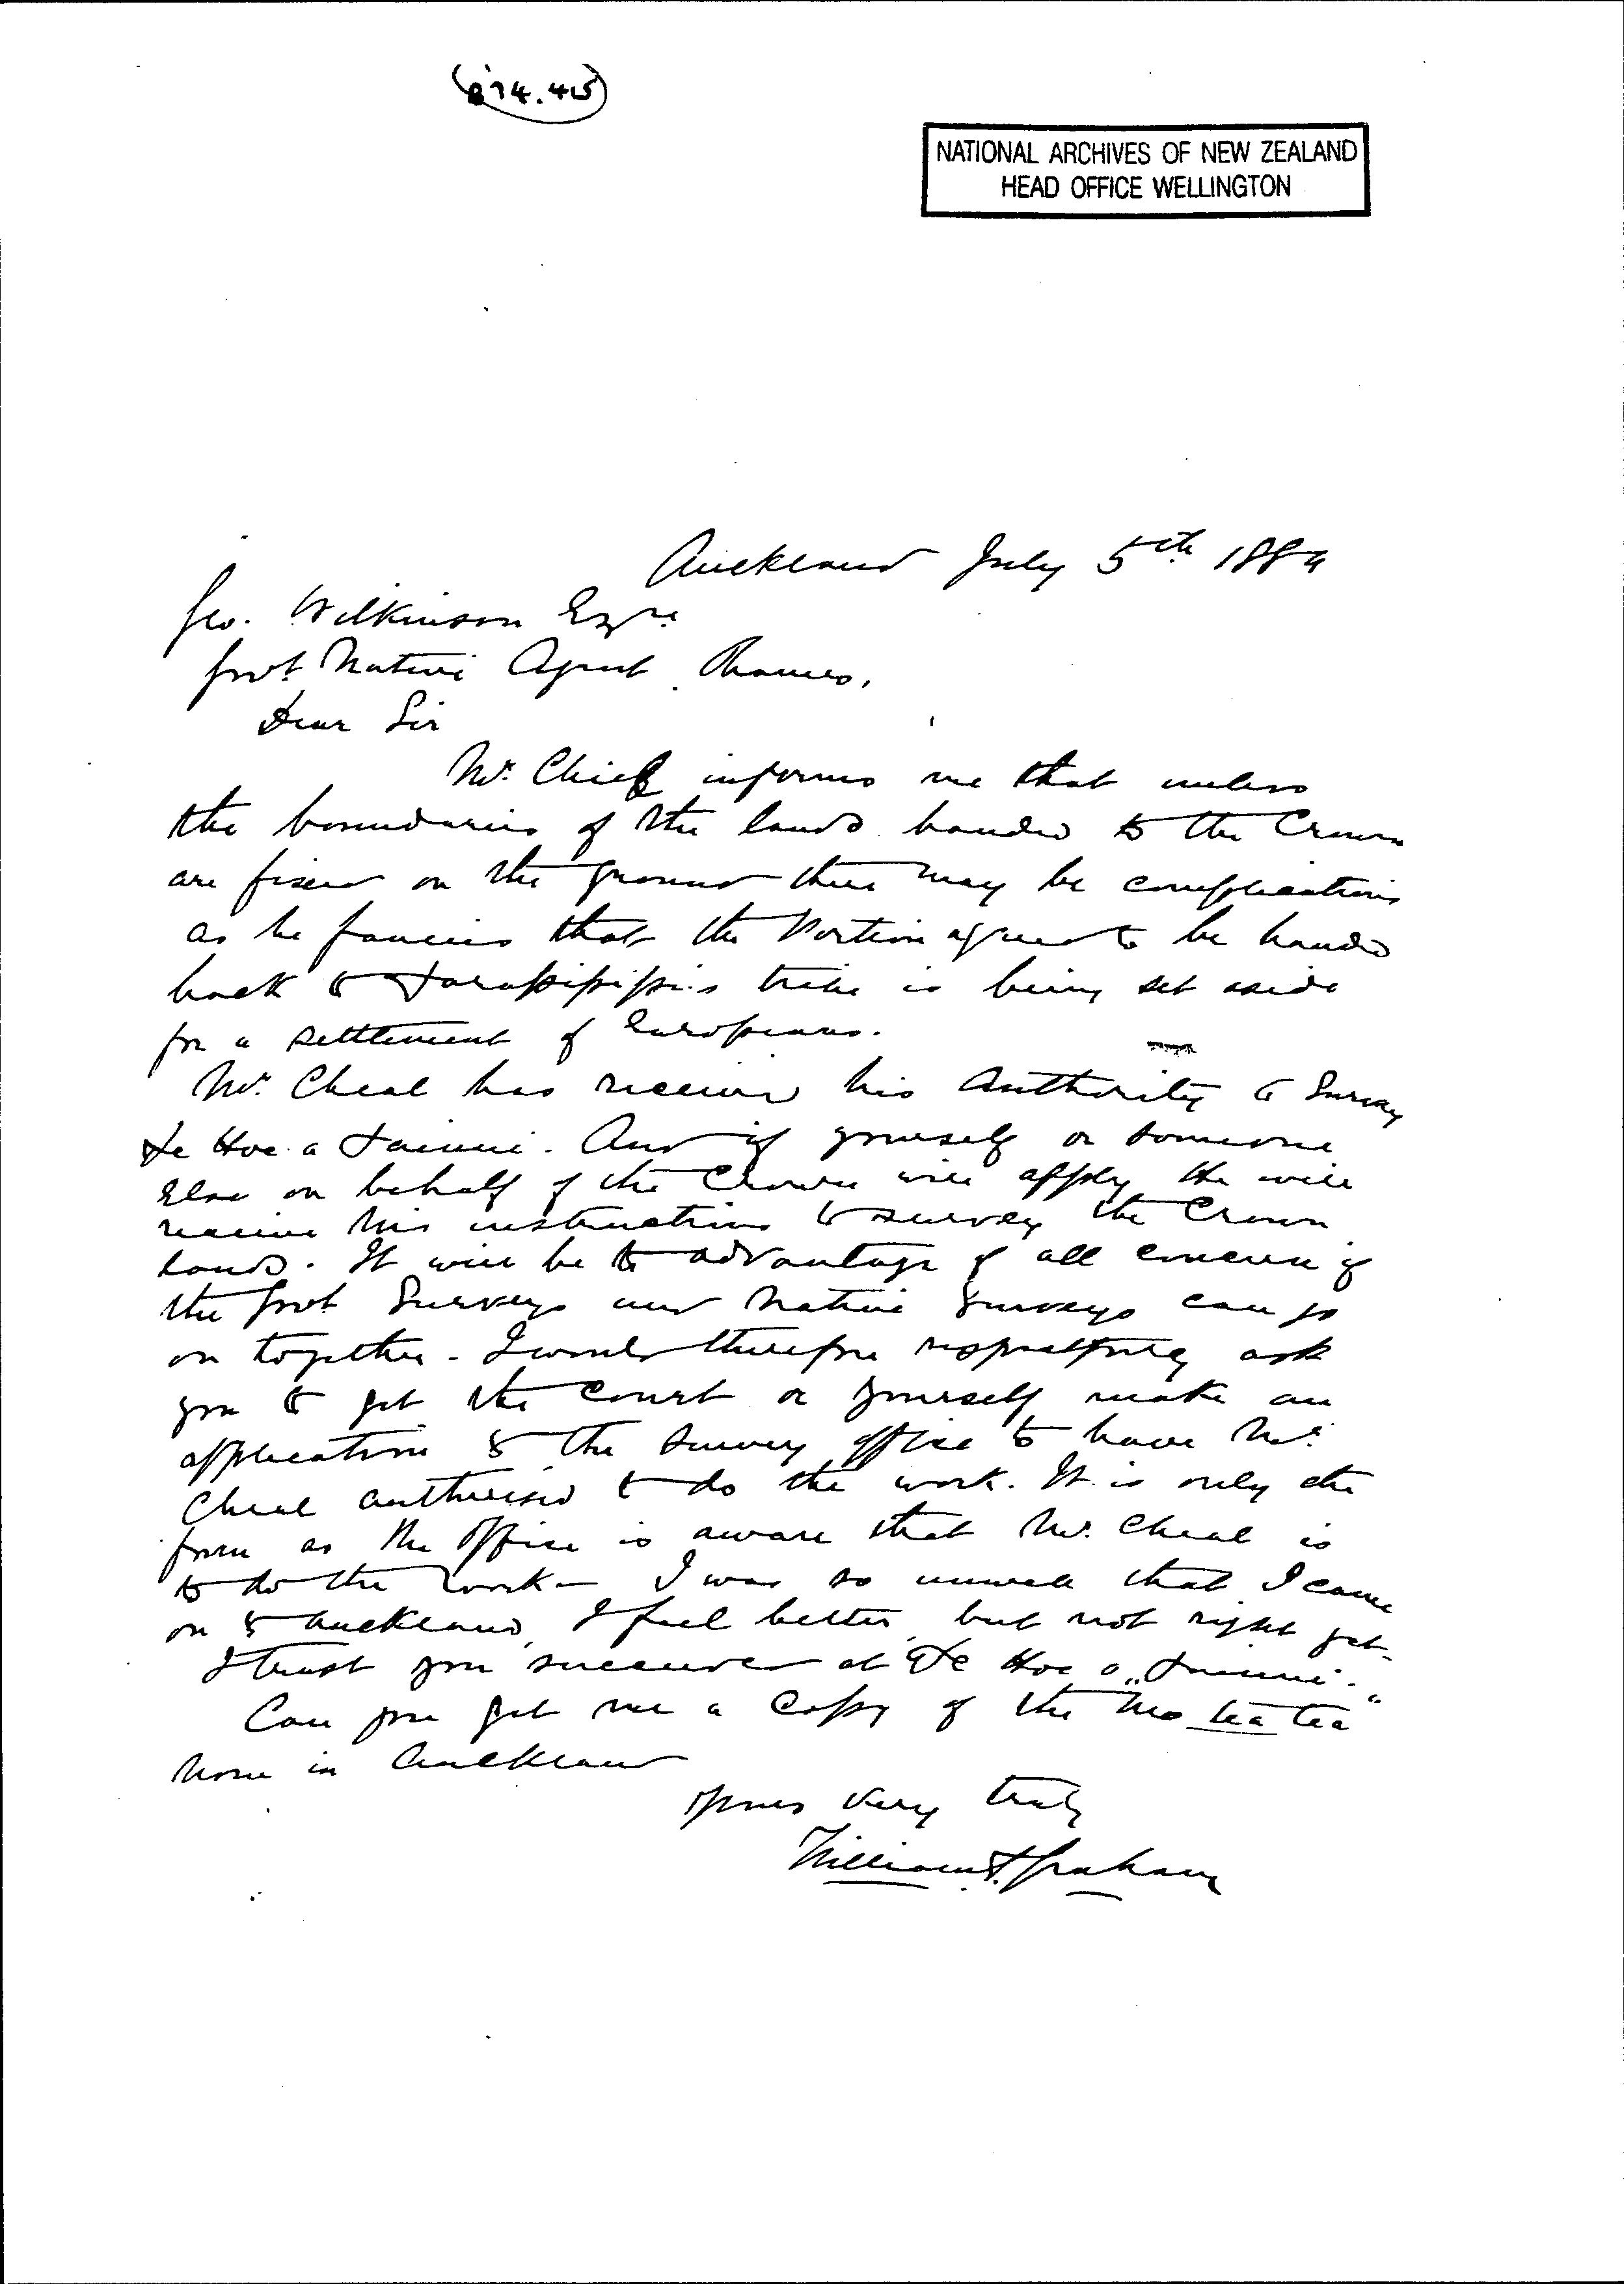 (874.45)
NATIONAL ARCHIVES OF NEW ZEALAND
HEAD OFFICE WELLINGTON
Auckland July 5th 1884
Geo. Wilkinson Esqre
Govt Native Agent Thames.
Dear Sir
Mr. informs me that unless
the boundaries of the lands handed to the Crown
are fixed on the ground there may be complications
as he fancies that the Portion agreed to be handed
back to Tarapipipi's tribe is being set aside
for a settlement of Europeans.
Mr. Cheal has received his Authority to Survey
Te Hoe a Tainui. And if yourself or someone
else on behalf of the Crown will apply he will
receive his instructions to survey the Crown
lands. It will be to advantage of all concern if
the Govt Surveys and Native Surveys can go
on together - I would therefore respectfully ask
you to get the Court or yourself make an
application to the Survey office to have Mr.
Cheal authorised to do the work. It is only the
form as the Office is aware that Mr. Cheal is
to do the work - I was so unwell that I came
on to Auckland, I feel better, but not right yet.
I trust you succeeded at Te Hoe o Tainui.
Can you get me a Copy of the "Mo tea tea"
None in Auckland
Yours very truly
William A. Graham